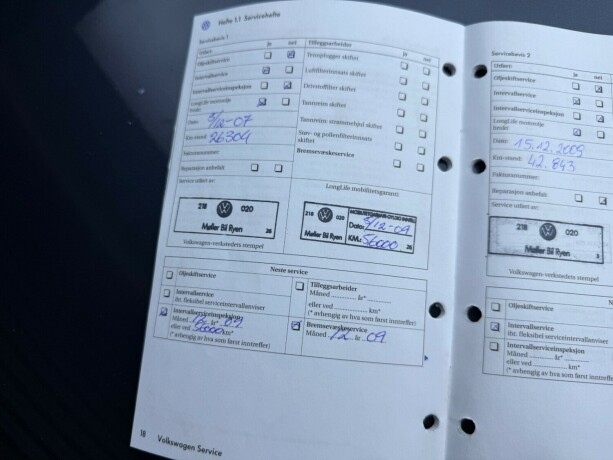 Hefte 1.1 Servicehefte
Servicebevis 1
Utført:
ja
nei
Oljeskiftservice
Intervallservice
Intervallserviceinspeksjon
LongLife motorolje
fordi:
Dato:
3/12-07
Km-stand:
26304
Fakturanummer:
Reparasjon anbefalt
Service utført av:
218
020
Møller Bil Ryen
28
Volkswagen-verkstedets stempel
Tilleggsarbeider
ja
nei
Tennplugger skiftet
Luftfilterinnsats skiftet
Drivstoffilter skiftet
Tannreim skiftet
Tannreim-strammehjul skiftet
Støv- og pollenfilterinnsats
skiftet
Bremsevæskeservice
LongLife mobilitetsgaranti
218
020
Møller Bil Ryen
Dato:
3/12-09
KM.:
56000
28
Neste service
Oljeskiftservice
Intervallservice
iht. fleksibel serviceintervallanviser
Intervallserviceinspeksjon
Måned 12 år* 09
eller ved 56000 km*
(* avhengig av hva som først inntreffer)
Tilleggsarbeider
Måned år*
eller ved km*
(* avhengig av hva som først inntreffer)
Bremsevæskeservice
Måned 12 år 09
18 Volkswagen Service
Servicebevis 2
Utført:
ja
nei
Oljeskiftservice
Intervallservice
Intervallserviceinspeksjon
LongLife motorolje
fordi:
Dato:
15.12.2009
Km-stand:
42.843
Fakturanummer:
Reparasjon anbefalt
Service utført av:
218
020
Møller Bil Ryen
Volkswagen-verkstedets stempel
Oljeskiftservice
Intervallservice
iht. fleksibel serviceintervallanviser
Intervallserviceinspeksjon
Måned år*
eller ved km*
(* avhengig av hva som først inntreffer)